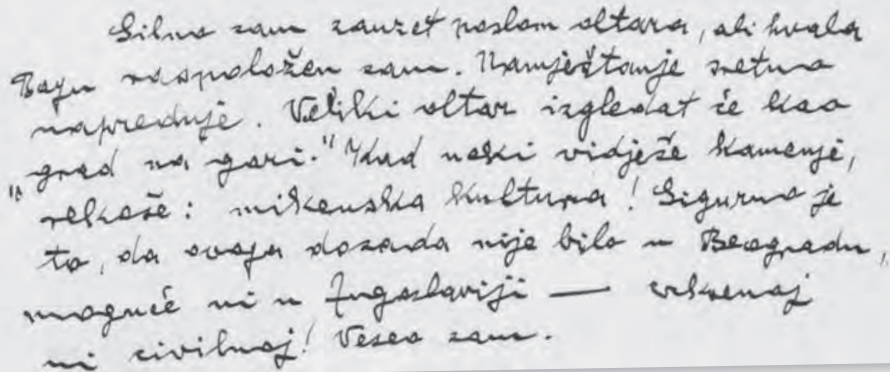 Silno sam zauzet poslom oltara, ali hvala
Bogu raspoložen sam. Namještanje sretno
napreduje. Veliki oltar izgledat će kao
"grad na gori." Kad neki vidješe kamenje,
rekoše: mikenska kultura! Sigurno je
to, da ovoga dosada nije bilo u Beogradu,
moguće ni u Jugoslaviji — crkvenoj
ni civilnoj! Veseo sam.